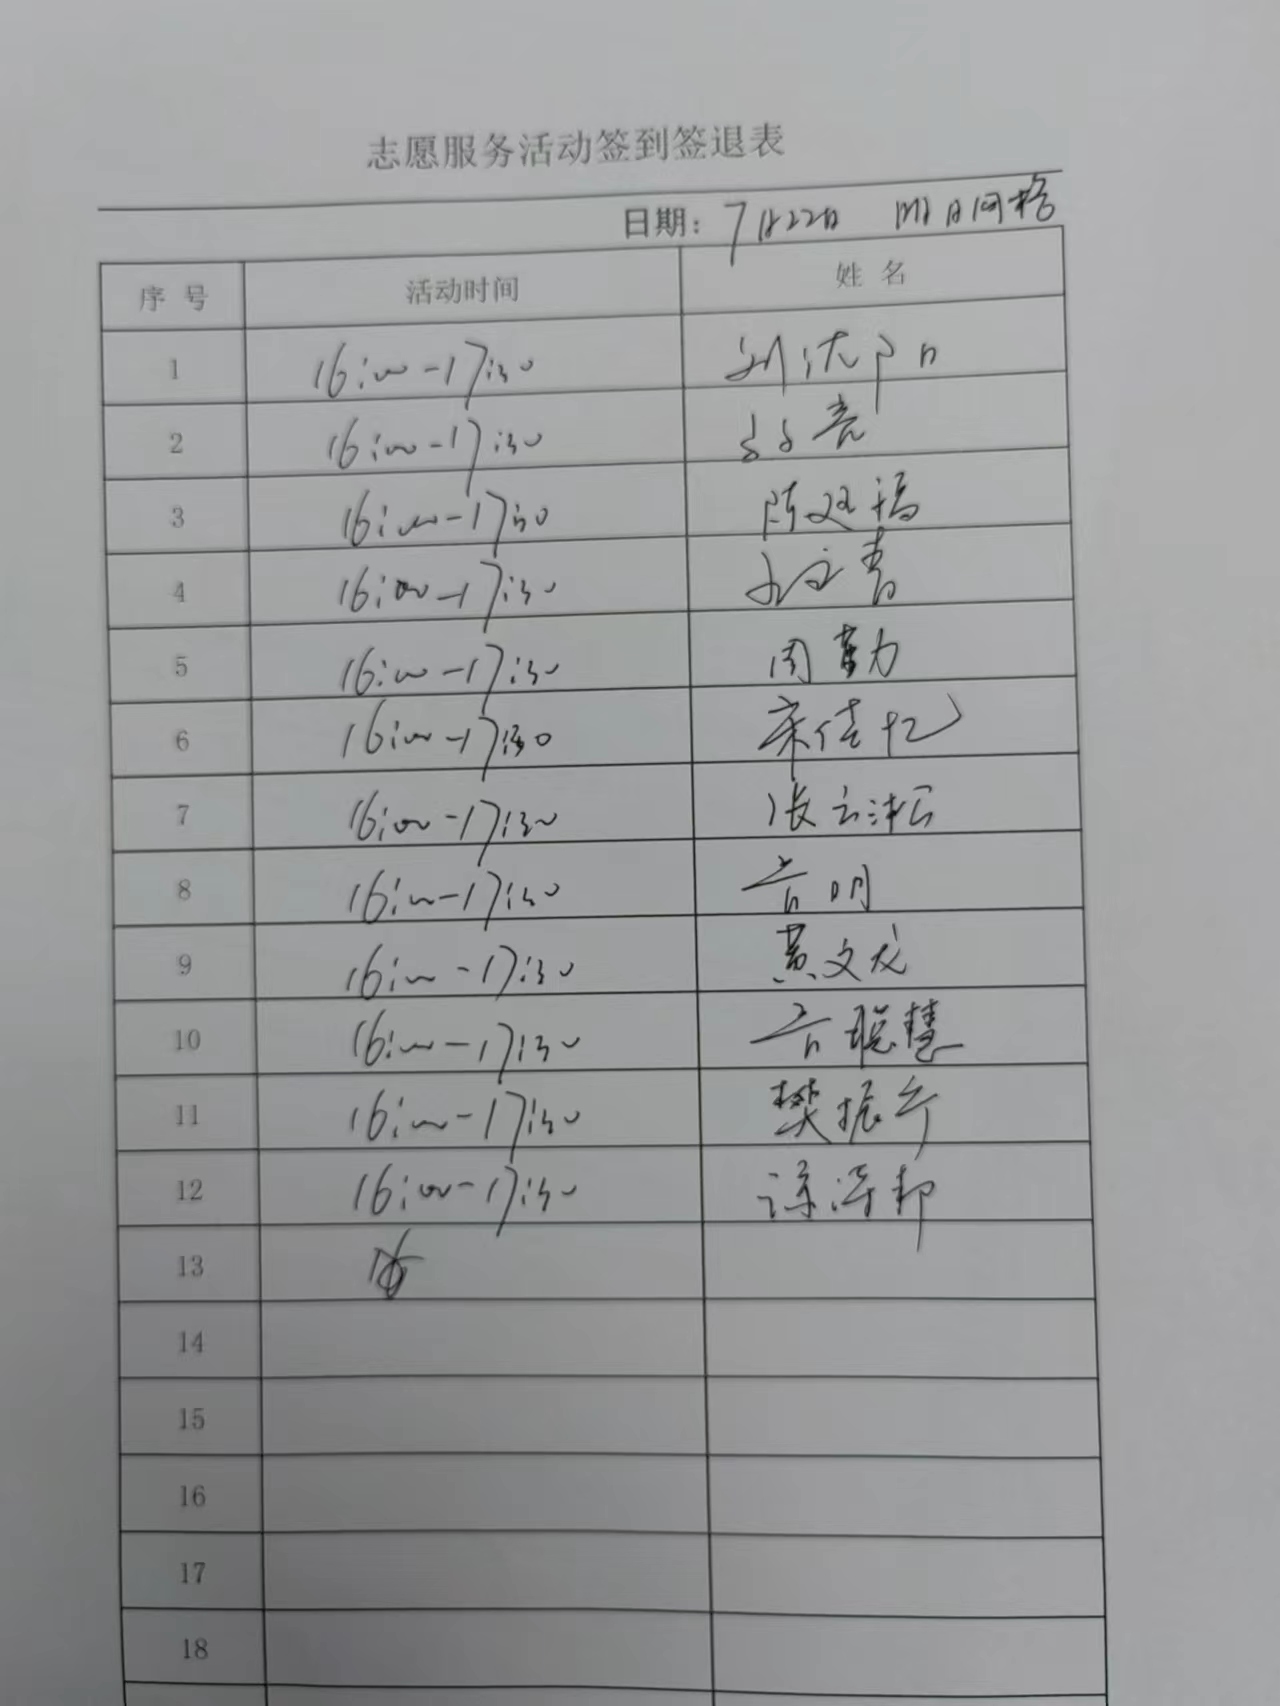 志愿服务活动签到签退表
日期: 7月22日 明日网格
序号 活动时间 姓名
1 16:00-17:30 刘沈阳
2 16:00-17:30 亮
3 16:00-17:30 陈双福
4 16:00-17:30 青
5 16:00-17:30 周勤
6 16:00-17:30 宋佳忆
7 16:00-17:30 张云淞
8 16:00-17:30 明
9 16:00-17:30 黄文龙
10 16:00-17:30 聪慧
11 16:00-17:30 樊振
12 16:00-17:30 邦
13
14
15
16
17
18